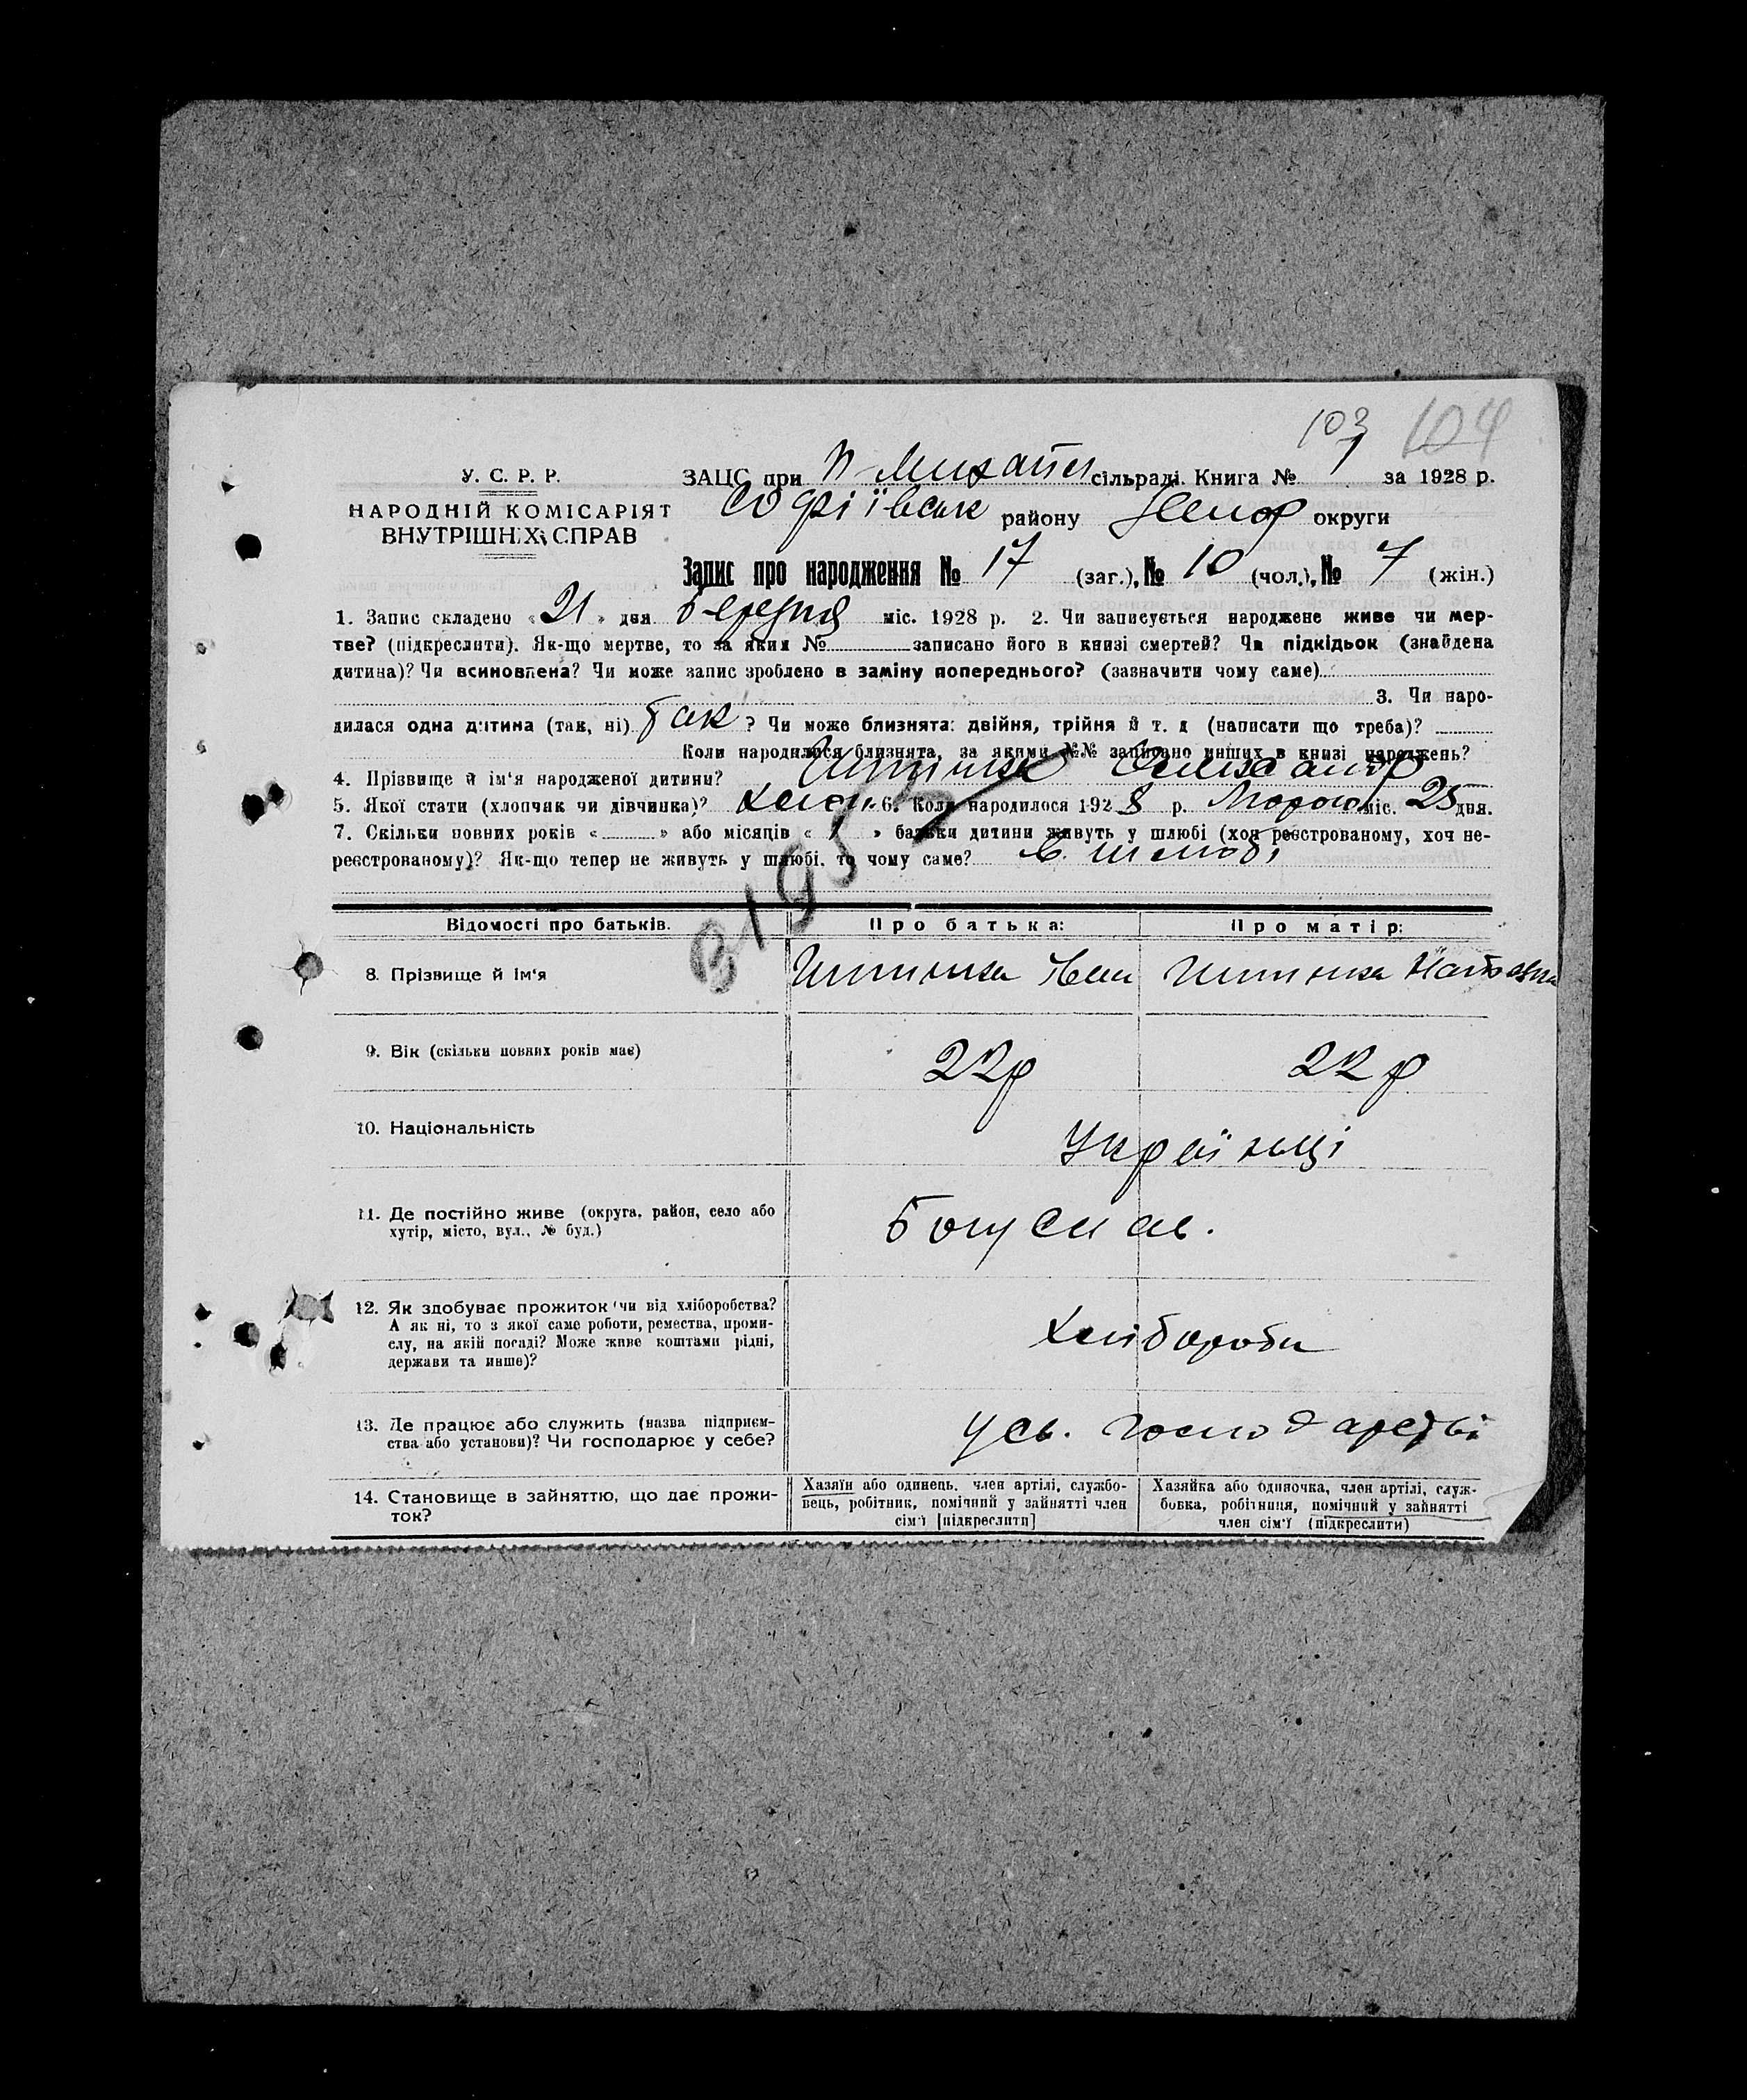 103 104
У. С. Р. Р.
НАРОДНІЙ КОМІСАРІЯТ
ВНУТРІШНІХ СПРАВ
ЗАЦС при сільраді. Книга № за 1928 р.
Софіївськ району округи
Запис про народження № 17 (заг.), № 10 (чол.), № 7 (жін.)
1. Запис складено « 21 » дня березня міс. 1928 р. 2. Чи записується народжене живе чи мер-
тве? (підкреслити). Як-що мертве, то за яким № записано його в книзі смертей? Чи підкідьок (знайдена
дитина)? Чи всиновлена? Чи може запис зроблено в заміну попереднього? (зазначити чому саме)
3. Чи наро-
дилася одна дитина (так, ні) так ? Чи може близнята: двійня, трійня й т. д (написати що треба)?
Коли народилися близнята, за якими №№ записано инших в книзі народжень?
4. Прізвище й ім'я народженої дитини? Олександр
5. Якої стати (хлопчик чи дівчинка)? хлопч. 6. Коли народилося 1928 р. Лютого міс. 25 дня.
7. Скільки повних років « » або місяців « » батьки дитини живуть у шлюбі (хоч реєстрованому, хоч не-
реєстрованому)? Як-що тепер не живуть у шлюбі, то чому саме? в шлюбі
Відомості про батьків. Про батька: Про матір:
8. Прізвище й ім'я Іван
9. Вік (скільки повних років має) 22р 22р
10. Національність Українці
11. Де постійно живе (округа, район, село або
хутір, місто, вул., № буд.) Богуслав.
12. Як здобуває прожиток чи від хліборобства?
А як ні, то з якої саме роботи, ремества, проми-
слу, на якій посаді? Може живе коштами рідні,
держави та инше)? Хлібороби
13. Де працює або служить (назва підприєм-
ства або установи)? Чи господарює у себе? у св. господарстві
14. Становище в зайняттю, що дає прожи-
ток?
Хазяїн або одинець, член артілі, службо-
вець, робітник, помічний у зайнятті член
сім'ї [підкреслити]
Хазяйка або одиночка, член артілі, служ-
бовка, робітниця, помічний у зайнятті
член сім'ї (підкреслити)